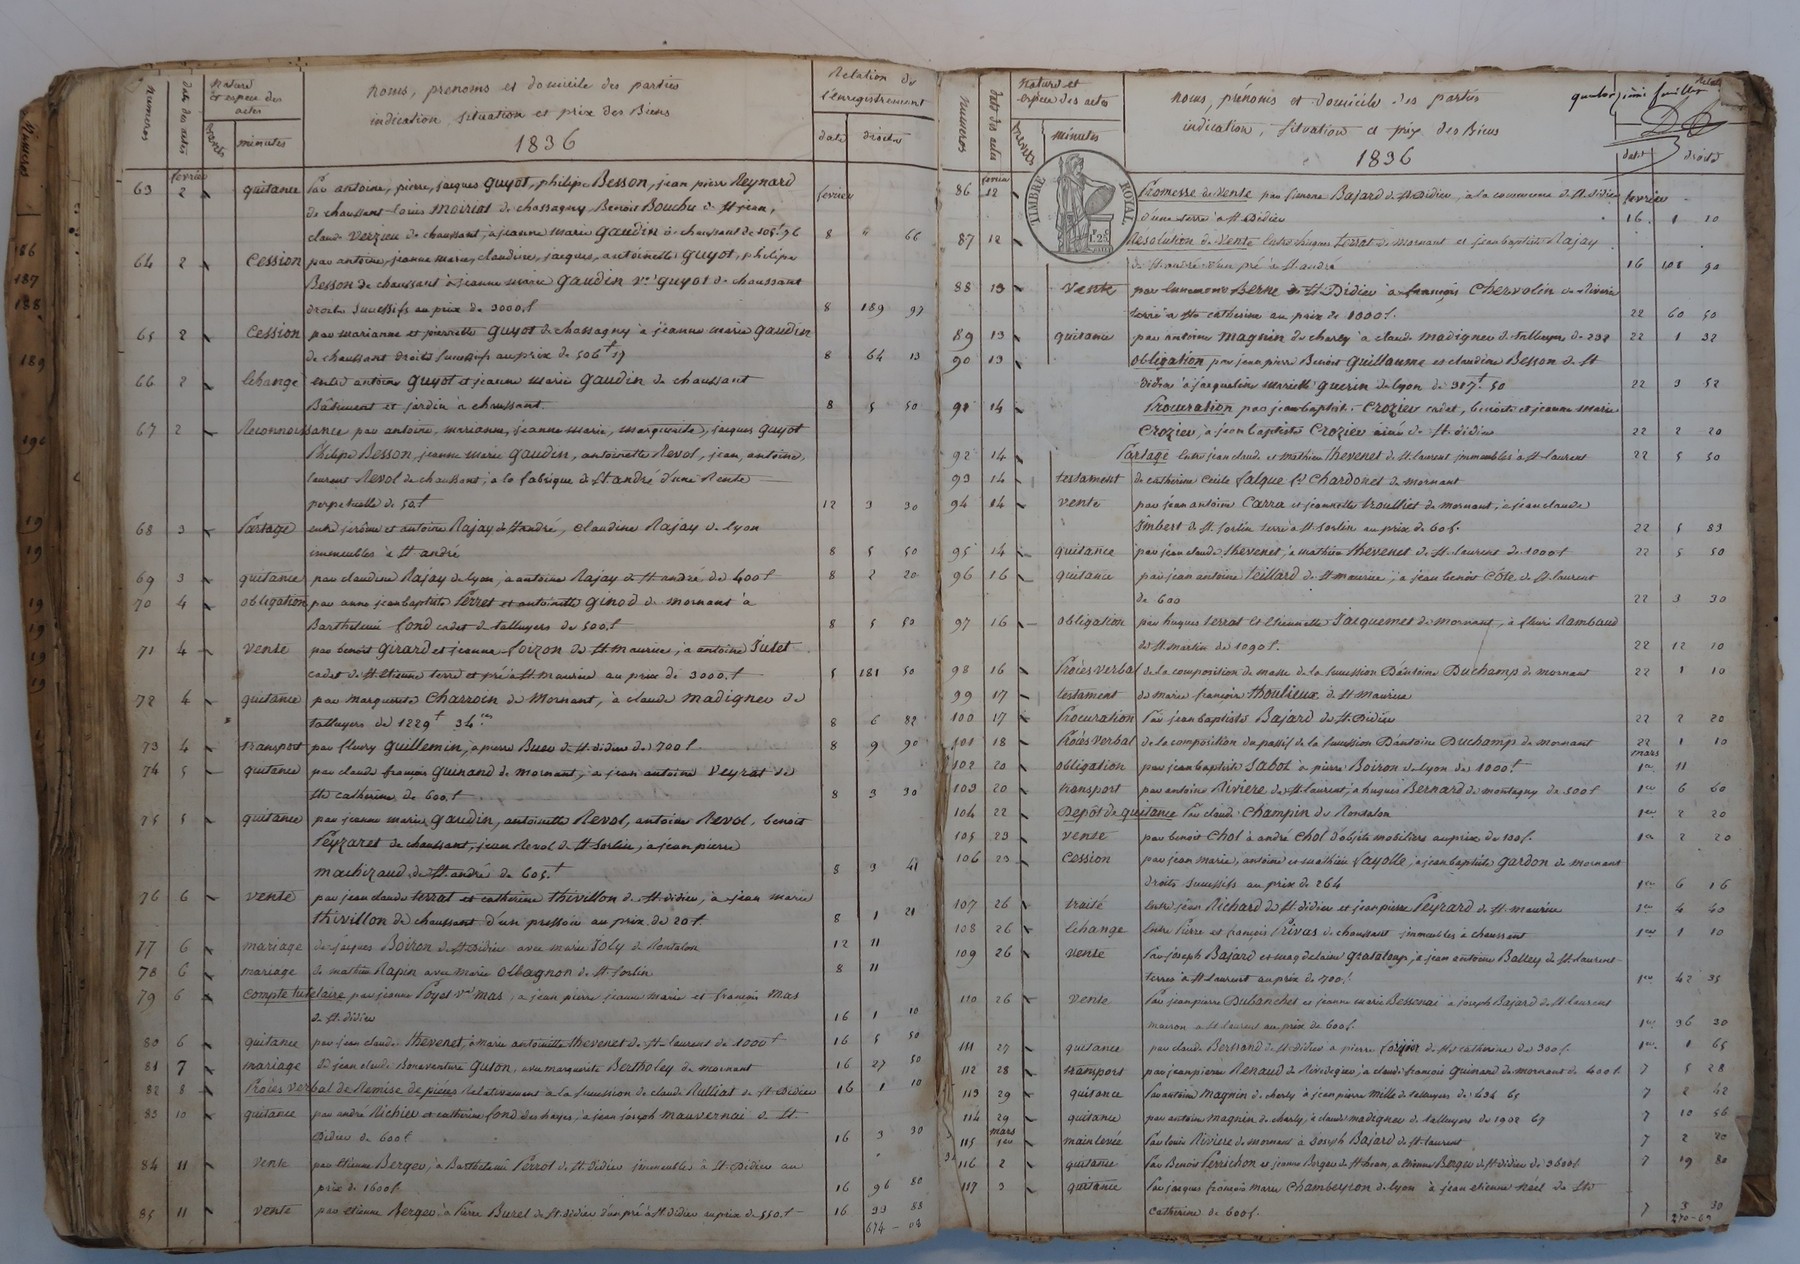 numeros
date des actes
Nature et espece des actes
Brevets
minutes
noms, prenoms et domicile des parties
indication, situation et prix des Biens
1836
Relation de l'enregistrement
date
droits
fevrier
63 2 quitance par antoine, pierre, jacques guyot, philipe Besson, jean pierre Reynard fevrier
de chaussant louis moiriat de chassagny Benoit Bouchu de St jean,
claude verzieu de chaussant, a jeanne marie gaudin de chaussant de 105f 76 8 " 66
64 2 Cession par antoine, jeanne marie, claudine, jacques, antoinette guyot, philipe
Besson de chaussant à jeanne marie gaudin ve guyot de chaussant
droits successifs au prix de 3000f 8 189 97
65 2 Cession par marianne et pierrette guyot de chassagny à jeanne marie gaudin
de chaussant droits successifs au prix de 506f 17 8 64 13
66 2 Echange entre antoine guyot et jeanne marie gaudin de chaussant
Bâtiment et jardin à chaussant 8 5 50
67 2 Reconnoissance par antoine, marianne, jeanne marie, marguerite, jacques guyot
Philipe Besson, jeanne marie gaudin, antoinette Revol, jean, antoine,
laurent Revol de chaussant, a la fabrique de St andré d'une Rente
perpetuelle de 50f 12 3 30
68 3 Partage entre jerôme et antoine Rajay de St andré, claudine Rajay de lyon
immeubles à St andré 8 5 50
69 3 quitance par claudine Rajay de lyon, a antoine Rajay de St andré de 400f 8 2 20
70 4 obligation par anne jean baptiste Perret et antoinette ginod de mornant à
Barthelemi fond cadet de talluyers de 500f 8 5 50
71 4 vente par benoit girard et jeanne foizon de St maurice, a antoine Jutet
cadet de St Etienne terre et pré a St maurice au prix de 3000f 5 181 50
72 4 quitance par marguerite Charroin de Mornant, à claude madignier de
talluyers de 1229f 34 8 6 82
73 4 transport par fleury guillemin, a pierre Buer de St didier de 700f 8 9 90
74 5 quitance par claude françois guinand de mornant, a jean antoine Veyrat de
Ste catherine de 600f 8 3 30
75 5 quitance par jeanne marie gaudin, antoinette Revol, antoine Revol, benoit
Peyzaret de chaussant, jean Revol de St Sorlin, a jean pierre
machizaud de St andré de 605f 8 3 41
76 6 vente par jean claude terrat et catherine thivillon de St didier, a jean marie
thivillon de chaussant d'un pressoir au prix de 20f 8 1 21
77 6 mariage de jacques Boiron de St Didier avec marie Joly de Rontalon 12 11
78 6 mariage de mathieu Rapin avec marie olbagnon de St Sorlin 8 11
79 6 Compte tutelaire par jeanne Poyet ve mas, a jean pierre jeanne marie et françois mas
de St didier 16 1 10
80 6 quitance par jean claude thevenet, a marie antoinette thevenet de St laurent de 1000f 16 5 50
81 7 mariage de jean claude Bonaventure guton, avec marguerite Bertholey de mornant 16 27 50
82 8 Procès verbal de Remise de pièces Relativement à la succession de claude Rulliat de St Didier 16 1 10
83 10 quitance par andré Richier et catherine fond des hayes, a jean joseph mauvernai de St
Didier de 600f 16 3 30
84 11 vente par etienne Berger, à Barthelemi Perrot de St Didier immeubles à St didier au
prix de 1600f 16 96 80
85 11 vente par etienne Berger à Pierre Burel de St didier d'un pré à St didier au prix de 550f 16 33 88
674 - 08
quatorzieme feuillet
numeros
date des actes
Nature et espece des actes
Brevets
minutes
noms, prénoms et domicile des parties
indication, situation et prix des Biens
1836
date
droits
TIMBRE ROYAL
1f. 25c
fevrier
86 12 Promesse de vente par simone Bajard de St Didier, a la commune de St didier fevrier
d'une terre à St Didier 16 1 10
87 12 Resolution de vente entre hugues terrat de mornant et jean baptiste Rajay
de St andré d'un pré à St andré 16 108 90
88 13 vente par Berne de St Didier à françois Chervolin de Riverie
terre à Ste catherine au prix de 1000f 22 60 50
89 13 quitance par antoine magnin de charly à claude madignier de talluyers de 232 22 1 32
90 13 obligation par jean pierre Benoit guillaume et claudine Besson de St
Didier à jacqueline mariette guerin de lyon de 317f 50 22 3 52
91 14 Procuration par jean baptiste Crozier cadet, benoite et jeanne marie
Crozier, a jean baptiste Crozier ainé de St didier 22 2 20
92 14 Partage entre jean claude et mathieu thevenet de St laurent immeubles à St laurent 22 5 50
93 14 testament de catherine Cecile falque fe Chardonet de mornant
94 14 vente par jean antoine Carra et jeannette trouillet de mornant, à jean claude
Imbert de St Sorlin terre à St Sorlin au prix de 60f 22 5 83
95 14 quitance par jean claude thevenet, à mathieu thevenet de St laurent de 1000f 22 5 50
96 16 quitance par jean antoine teillard de St maurice, à jean benoit Côte de St laurent
de 600 22 3 30
97 16 obligation par hugues terrat et etiennette Jacquemet de mornant, à fleuri Rambaud
de St martin de 1090f 22 12 10
98 16 Procès verbal de la composition de masse de la succession d'antoine Duchamp de mornant 22 1 10
99 17 testament de marie françoise thoulieux de St maurice
100 17 Procuration Par jean baptiste Bajard de St Didier 22 2 20
101 18 Procès verbal de la composition du passif de la succession d'antoine Duchamp de mornant 22 1 10
mars
102 20 obligation par jean baptiste Sabot à pierre Boiron de lyon de 1000f 1er 11
103 20 transport par antoine Riviere de St laurent, a hugues Bernard de montagny de 500f 1er 6 60
104 22 Depôt de quitance Par claude Champin de Rontalon 1er 2 20
105 23 vente par benoit Chol à andré Chol d'objets mobiliers au prix de 100f 1er 2 20
106 23 Cession par jean marie, antoine et mathieu fayolle, a jean baptiste gardon de mornant
droits successifs au prix de 264 1er 6 16
107 26 traité entre jean Richard de St didier et jean pierre Peyrard de St maurice 1er 4 40
108 26 Echange entre Pierre et françois Privas de chaussant immeubles à chaussant 1er 1 10
109 26 vente Par joseph Bajard et magdelaine grataloup, à jean antoine Balley de St laurent
terres à St laurent au prix de 700f 1er 42 35
110 26 vente Par jean pierre Dubanchet et jeanne marie Bessenai à joseph Bajard de St laurent
maison à St laurent au prix de 600f 1er 36 30
111 27 quitance par claude Bertrand de St didier à pierre de Ste catherine de 300f 1er 1 65
112 28 transport par jean pierre Renaud de Rivedegier, à claude françois guinand de mornant de 400f 7 5 28
113 29 quitance Par antoine magnin de charly à jean pierre mille de talluyers de 434 65 7 2 42
114 29 quitance par antoine magnin de charly, à claude madignier de talluyers de 1902 67 7 10 56
mars
115 1er mainlevée Par louis Riviere de mornant à Joseph Bajard de St laurent 7 2 20
116 2 quitance Par Benoit Perrichon et jeanne Berger de St Jean, a etienne Berger de St didier de 3600f 7 19 80
117 3 quitance Par jacques françois marie Chambeyron de lyon à jean etienne Réel de Ste
Catherine de 600f 7 3 30